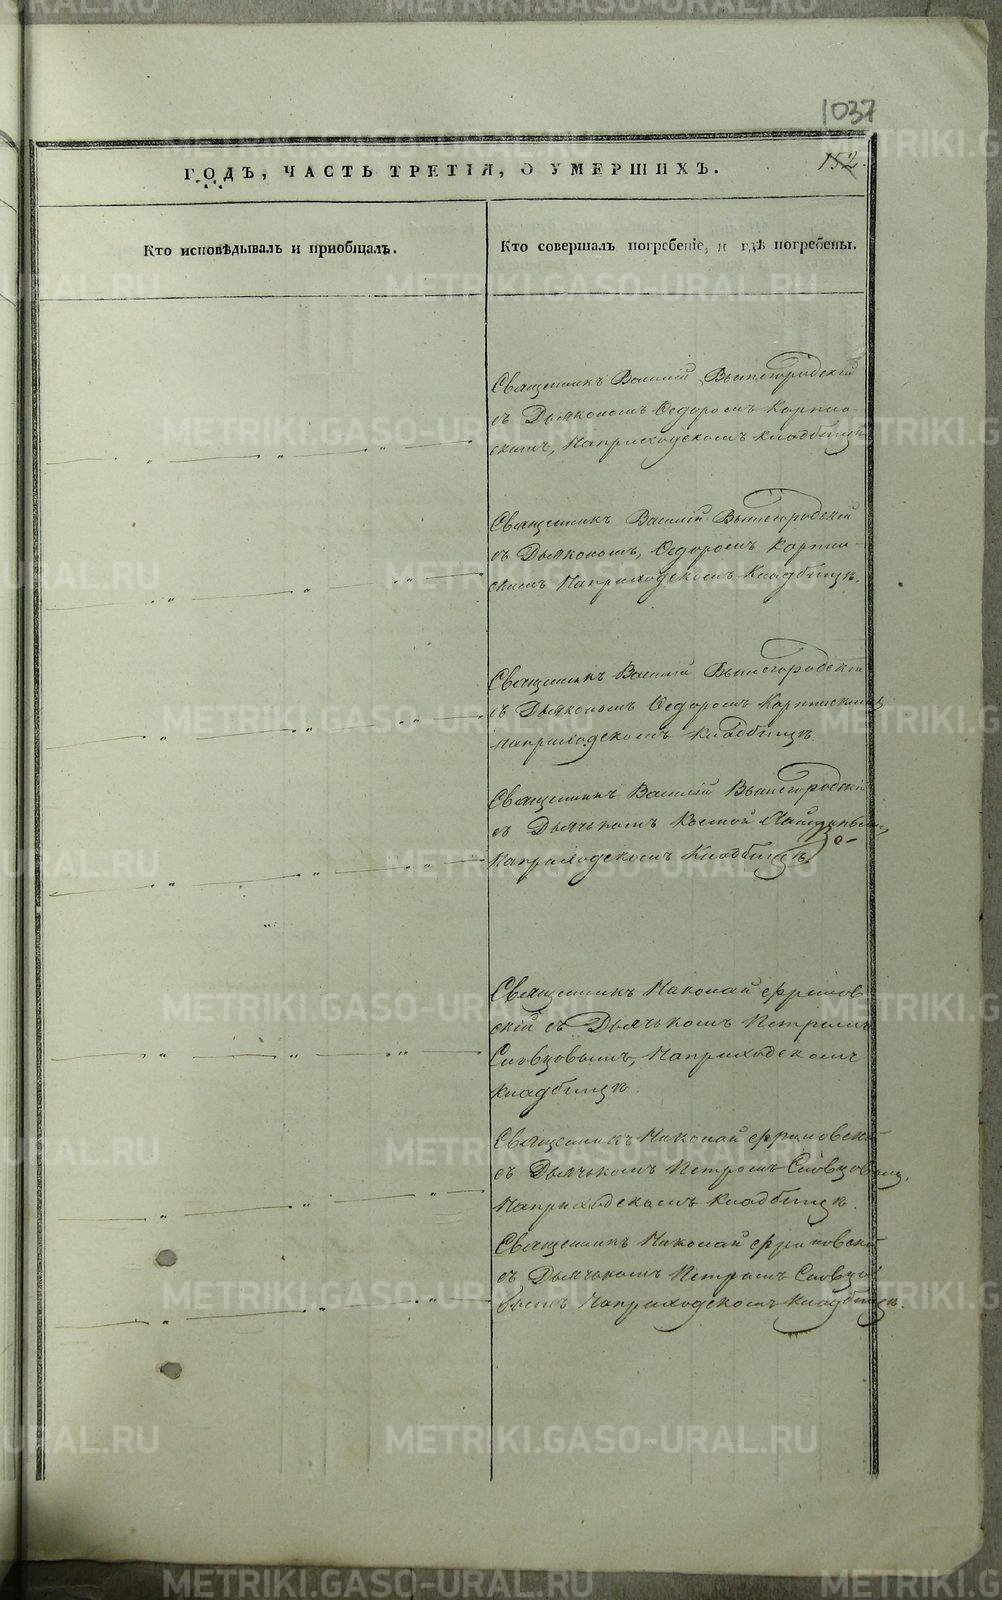 1037
152.
ГОДѢ, ЧАСТЬ ТРЕТІЯ, О УМЕРШИХЪ.
Кто исповѣдывалъ и пріобщалъ.
Кто совершалъ погребеніе, и гдѣ погребены.
Священникъ Василій Вышегородскій
съ Дьякономъ Ѳедоромъ Карпин-
скимъ, Наприходскомъ кладбищѣ
Священникъ Василій Вышегородскій
съ Дьякономъ, Ѳедоромъ Карпин-
скимъ Наприходскомъ Кладбищѣ.
Священникъ Василій Вышегородскій
съ Дьякономъ Ѳедоромъ Карпинскимъ
наприходскомъ Кладбищѣ.
Священникъ Василій Вышегородскій
съ Дьячькомъ Козмой
Наприходскомъ Кладбищѣ.
Священникъ Николай
скій съ Дьячькомъ Петромъ
Словцовымъ, Наприходскомъ
кладбищѣ.
Священникъ Николай
съ Дьячькомъ Петромъ Словцовым.
Наприходскомъ Кладбищѣ.
Священникъ Николай
съ Дьячькомъ Петромъ Словцо
вымъ Наприходскомъ Кладбищѣ.
METRIKI.GASO-URAL.RU